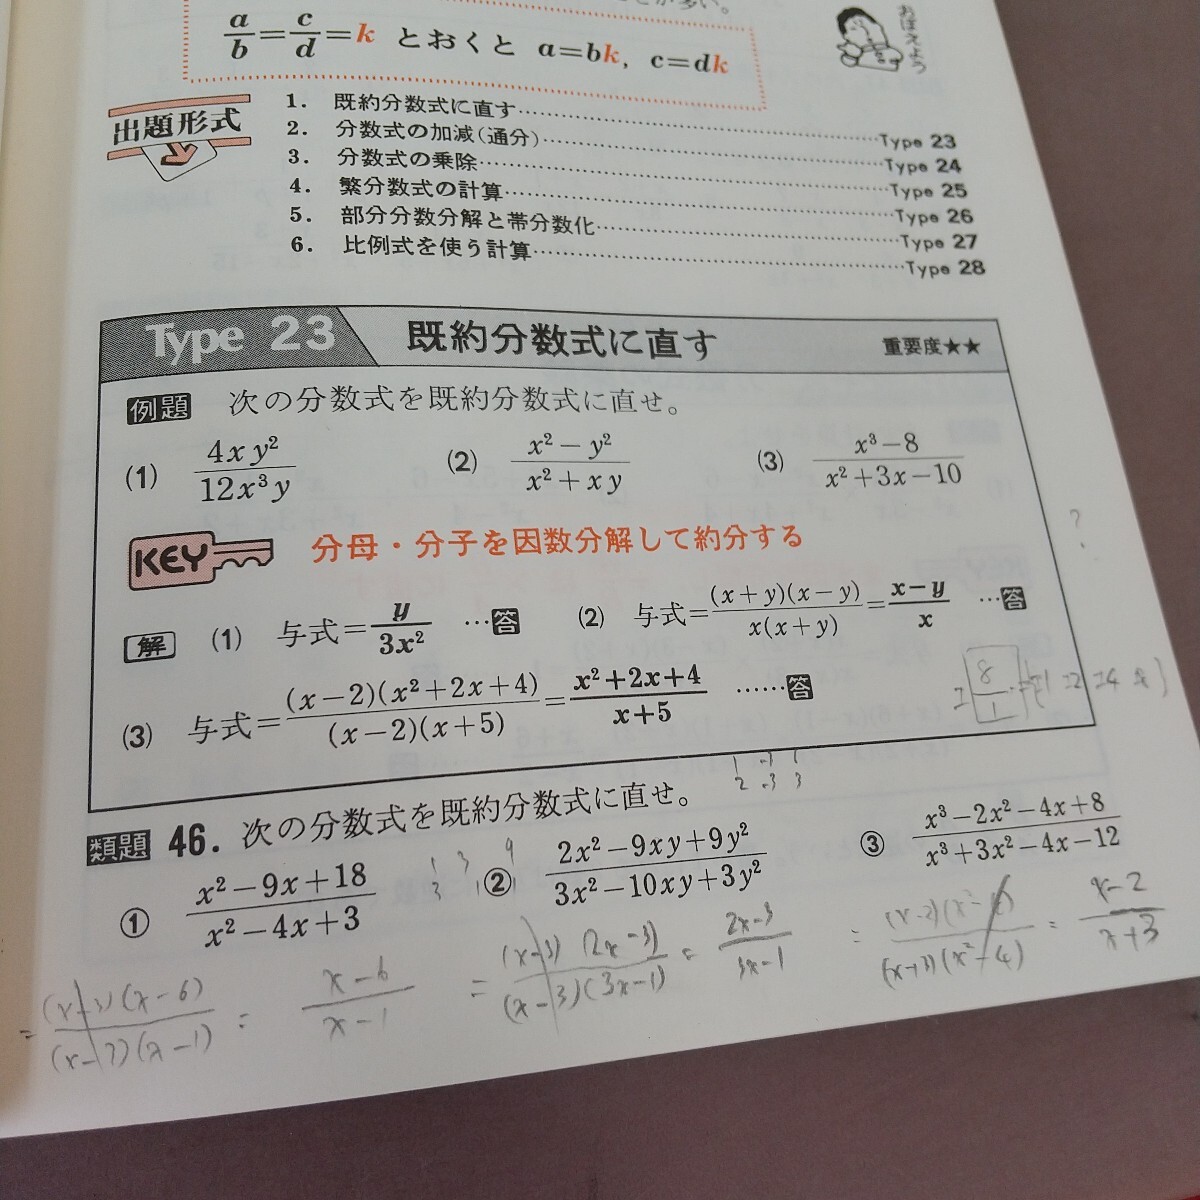 a/b=c/d=k とおくと a=bk, c=dk
おぼえよう
出題形式
1. 既約分数式に直す……Type 23
2. 分数式の加減(通分)……Type 24
3. 分数式の乗除……Type 25
4. 繁分数式の計算……Type 26
5. 部分分数分解と帯分数化……Type 27
6. 比例式を使う計算……Type 28
Type 23 既約分数式に直す 重要度★★
例題 次の分数式を既約分数式に直せ。
(1) 4xy²/12x³y (2) x²−y²/x²+xy (3) x³−8/x²+3x−10
KEY 分母・分子を因数分解して約分する
?
解 (1) 与式=y/3x² …答 (2) 与式=(x+y)(x−y)/x(x+y)=x−y/x …答
(3) 与式=(x−2)(x²+2x+4)/(x−2)(x+5)=x²+2x+4/x+5 ……答
類題 46. 次の分数式を既約分数式に直せ。
① x²−9x+18/x²−4x+3 ② 2x²−9xy+9y²/3x²−10xy+3y² ③ x³−2x²−4x+8/x³+3x²−4x−12
=(x−3)(x−6)/(x−3)(x−1)=x−6/x−1 =(x−3)(2x−3)/(x−3)(3x−1)=2x−3/3x−1 =(x−2)(x²−4)/(x+3)(x²−4)=x−2/x+3